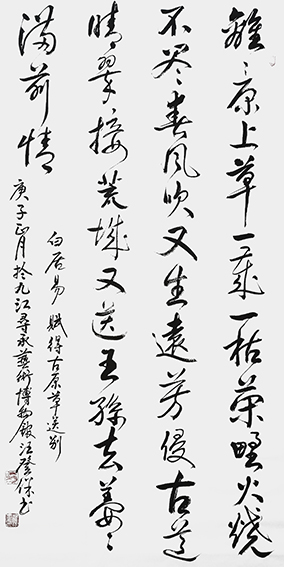 離〻原上草一歲一枯榮野火燒
不尽春風吹又生遠芳侵古道
晴翠接荒城又送王孫去萋〻
滿前情
白居易 賦得古原草送別
庚子正月於九江尋永藝術博物館汪登保书